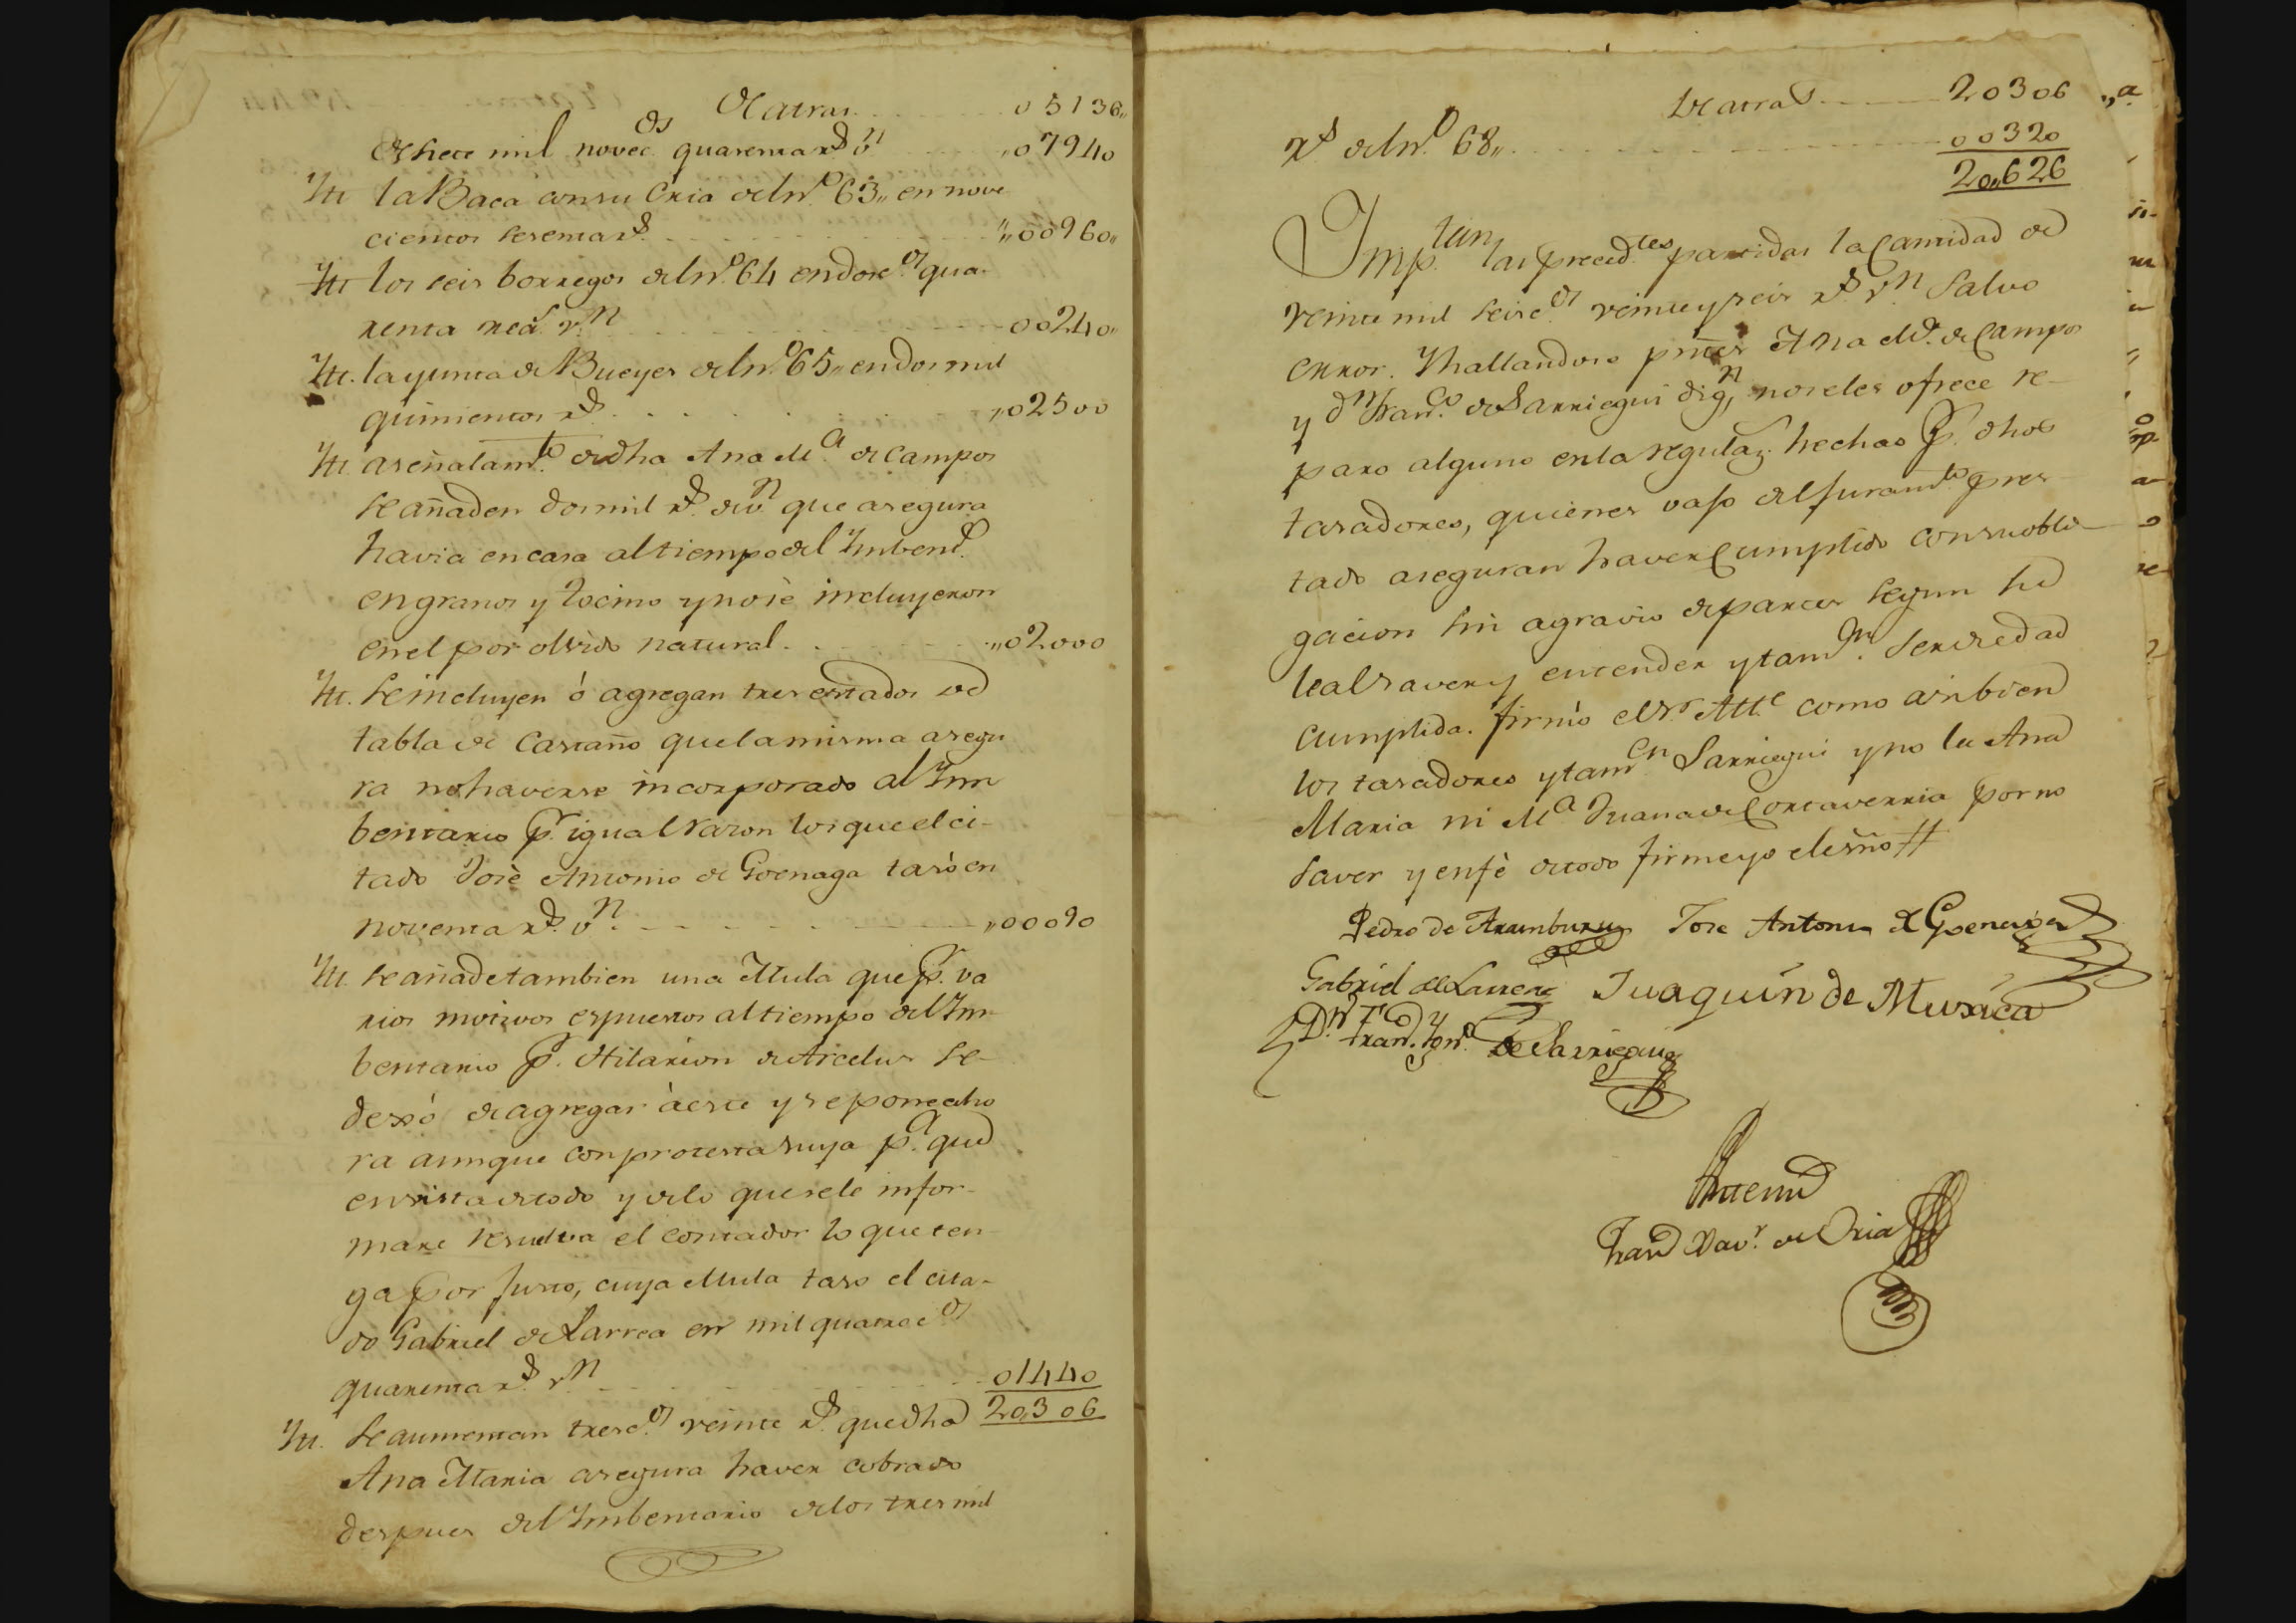 De atras . . . . . . 05136,,
de siete mil novec.os quarenta r.s v.n ,,07940
Yt. la Baca con su Cria del n.o 63,, en nove
cientos sesenta r.s . . . . . ,,00960,,
Yt. los seis borregos del n.o 64 en dosc.os qua-
renta rea.s v.n . . . . . 00240,,
Yt. la yunta de Bueyes del n.o 65,, en dos mil
quinientos r.s . . . . . ,,02500
Yt. a señalam.to de dha Ana M.a de Campos
se añaden dos mil r.s de v.n que asegura
havia en casa al tiempo del Ymbent.o
en granos y tocino y no se incluyeron
en el por olvido natural . . . . . ,,02000
Yt. se incluyen ó agregan tres estados de
tabla de Castaño que la misma asegu
ra no haverse incorporado al Ym
bentario p.r igual razon los que el ci-
tado Josè Antonio de Goenaga tasò en
noventa r.s v.n . . . . . ,,00090
Yt. se añade tambien una Mula que p.r va
rios motivos espuestos al tiempo del Ym-
bentario p.r Hilarion de Arcelus se-
dexò de agregar à este y se pone aho
ra aunque con protesta suya p.a que
en vista de todo y de lo que se le infor-
mare resuelva el contador lo que ten-
ga por Justo, cuya Mula taso el cita-
do Gabriel de Larrea en mil quatroc.os
quarenta r.s v.n . . . . . 01440
20,306
Yt. se aumentan tresc.os veinte r.s que dha
Ana Maria asegura haver cobrado
despues del Ymbentario de los tres mil
De atras . . . . . 20306
r.s del n.o 68,, . . . . . 00320
20,,626
Imp.tan las preced.tes partidas la Cantidad de
veinte mil seisc.os veinte y seis r.s v.n salvo
error. Y hallandose pntes Ana M.a de Campos
y d.n Fran.co de Sarriegui dig.n no se les ofrece re-
paro alguno en la regulaz.n hechas p.r dhos
tasadores, quienes vajo del Juram.to pres-
tado aseguran haver Cumplido con su obli-
gacion sin agravio de partes segun su
leal saver y entender y tam.n ser de edad
cumplida. firmò el S.r Alc.e como asibien
los tasadores y tam.en Sarriegui y no la Ana
Maria ni M.a Juana de Contaverria por no
saver y en fè de todo firme yo el esno //
Pedro de Aramburu Jose Antonio de Goenaga
Gabriel de Larrea Juaquin de Muxica
D.n Fran.co Yg.n de Sarriegui
Antemi
Fran.co Xav.r de Oria